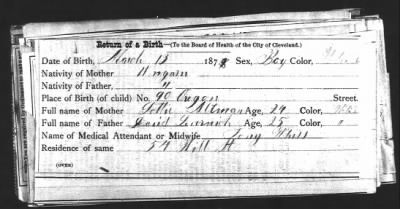 Return of a Birth—(To the Board of Health of the City of Cleveland.)
Date of Birth, March 13 187 Sex, Boy Color,
Nativity of Mother Ungarn
Nativity of Father, "
Place of Birth (of child) No. 90 Street.
Full name of Mother Age, 24 Color,
Full name of Father David Age, 25 Color, "
Name of Medical Attendant or Midwife,
Residence of same 54 Hill St
(OVER)